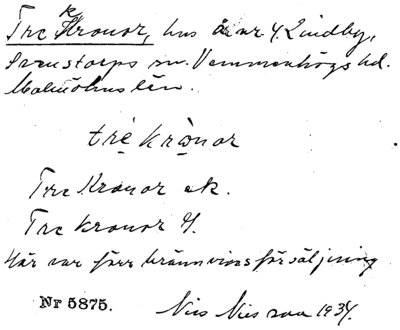 Tre Kronor, hus å nr 4 Lindby,
Svenstorps sn. Vemmenhögs hd.
Malmöhus län.
trè krònor
Tre Kronor ek.
Tre kronor
Här var förr brännvinsförsäljning
Nr 5875. Nils Nilsson 1934.